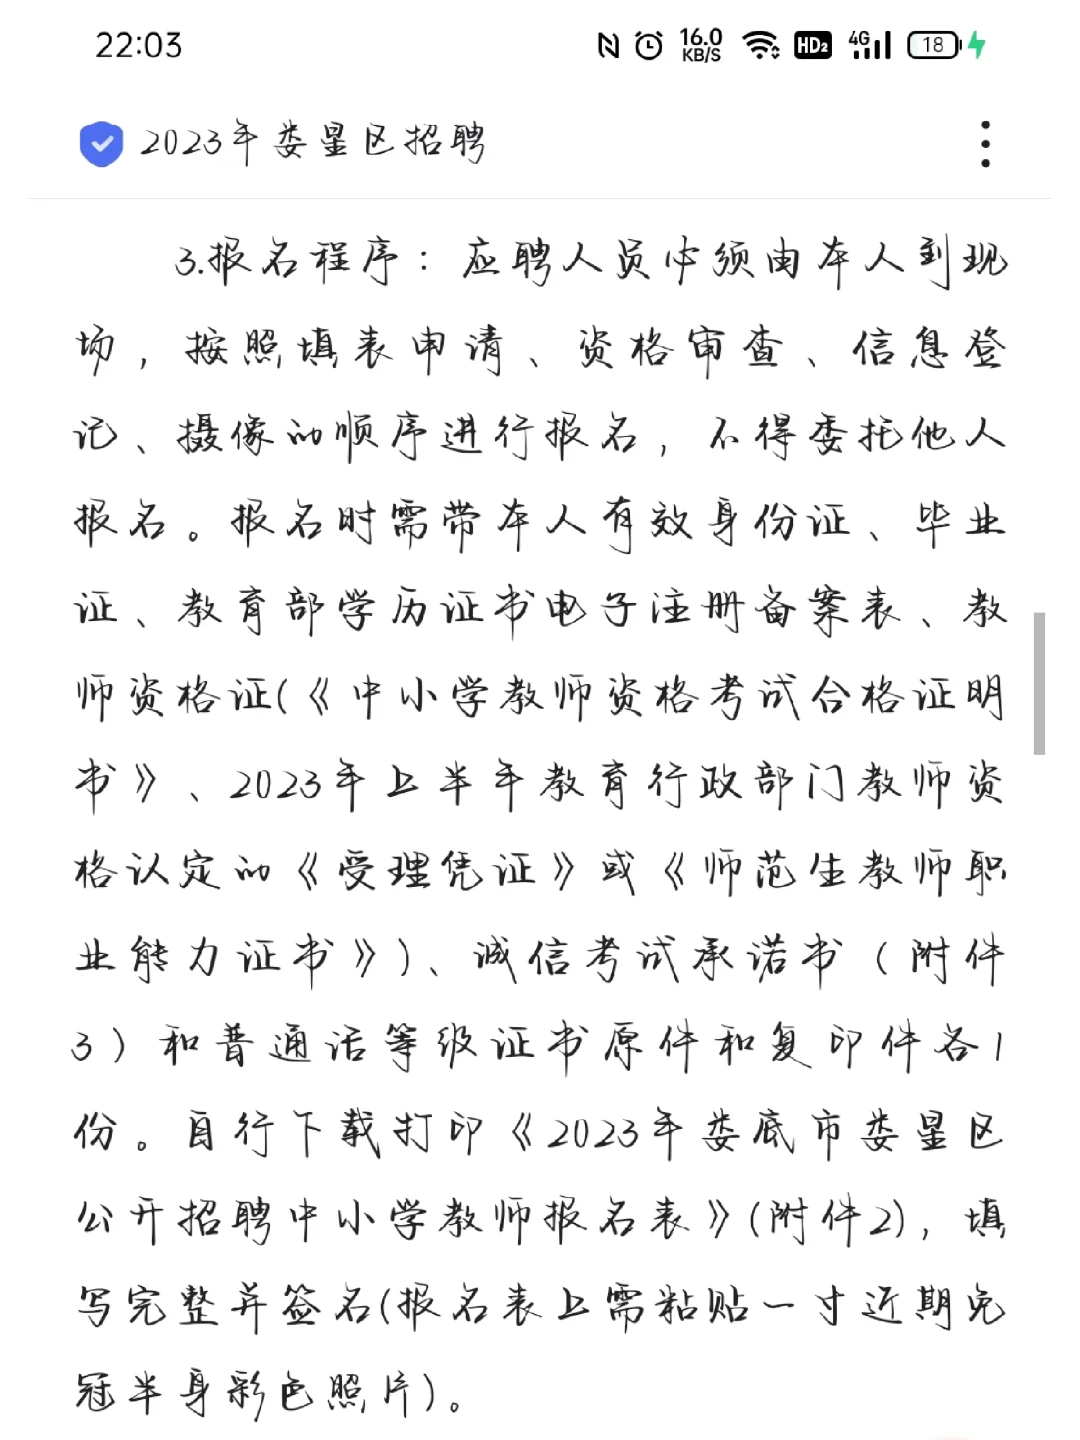 22:03
16.0 KB/S HD2 4G 18
2023年娄星区招聘
3.报名程序：应聘人员必须由本人到现
场，按照填表申请、资格审查、信息登
记、摄像的顺序进行报名，不得委托他人
报名。报名时需带本人有效身份证、毕业
证、教育部学历证书电子注册备案表、教
师资格证(《中小学教师资格考试合格证明
书》、2023年上半年教育行政部门教师资
格认定的《受理凭证》或《师范生教师职
业能力证书》)、诚信考试承诺书（附件
3）和普通话等级证书原件和复印件各1
份。自行下载打印《2023年娄底市娄星区
公开招聘中小学教师报名表》(附件2)，填
写完整并签名(报名表上需粘贴一寸近期免
冠半身彩色照片)。